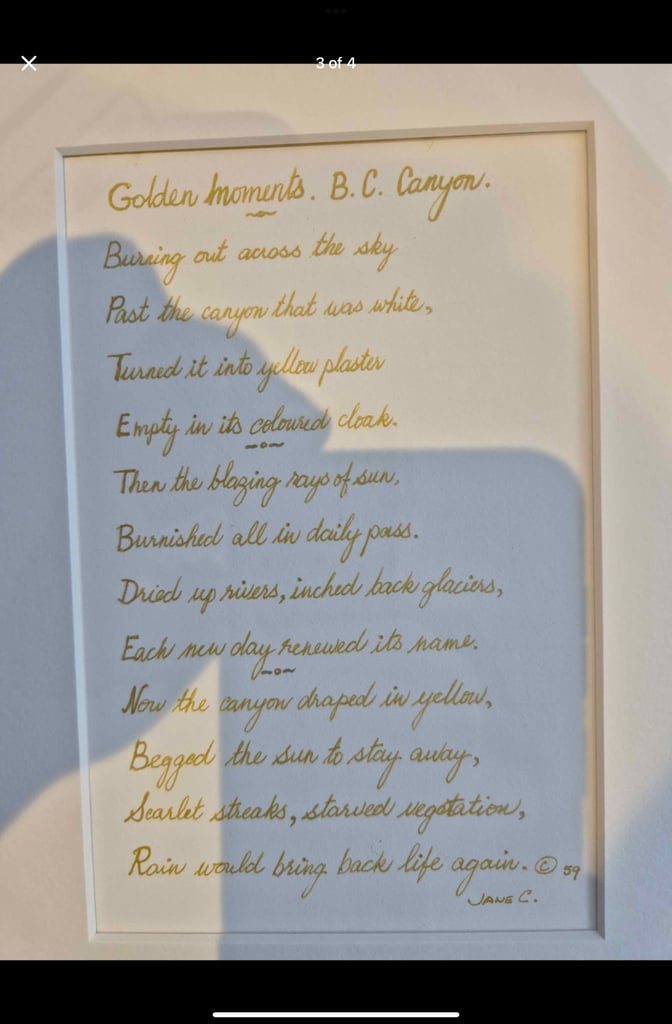 3 of 4
Golden Moments. B.C. Canyon.
Burning out across the sky
Past the canyon that was white,
Turned it into yellow plaster
Empty in its coloured cloak.
Then the blazing rays of sun,
Burnished all in daily pass.
Dried up rivers, inched back glaciers,
Each new day renewed its name.
Now the canyon draped in yellow,
Begged the sun to stay away,
Scarlet streaks, starved vegetation,
Rain would bring back life again. © 59
JANE C.